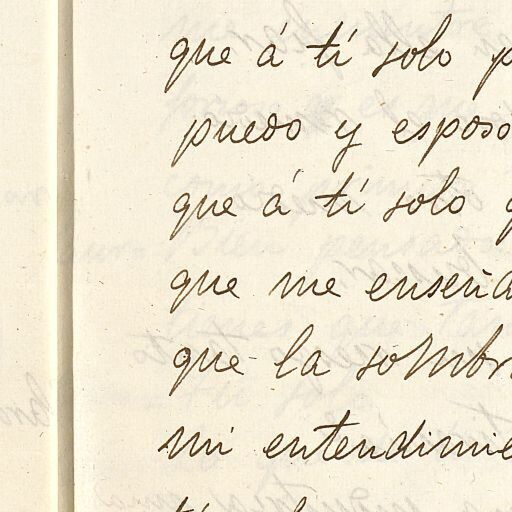 que á tí solo p
puedo y esposo
que á tí solo q
que me enseña
que la sombr
mi entendimie